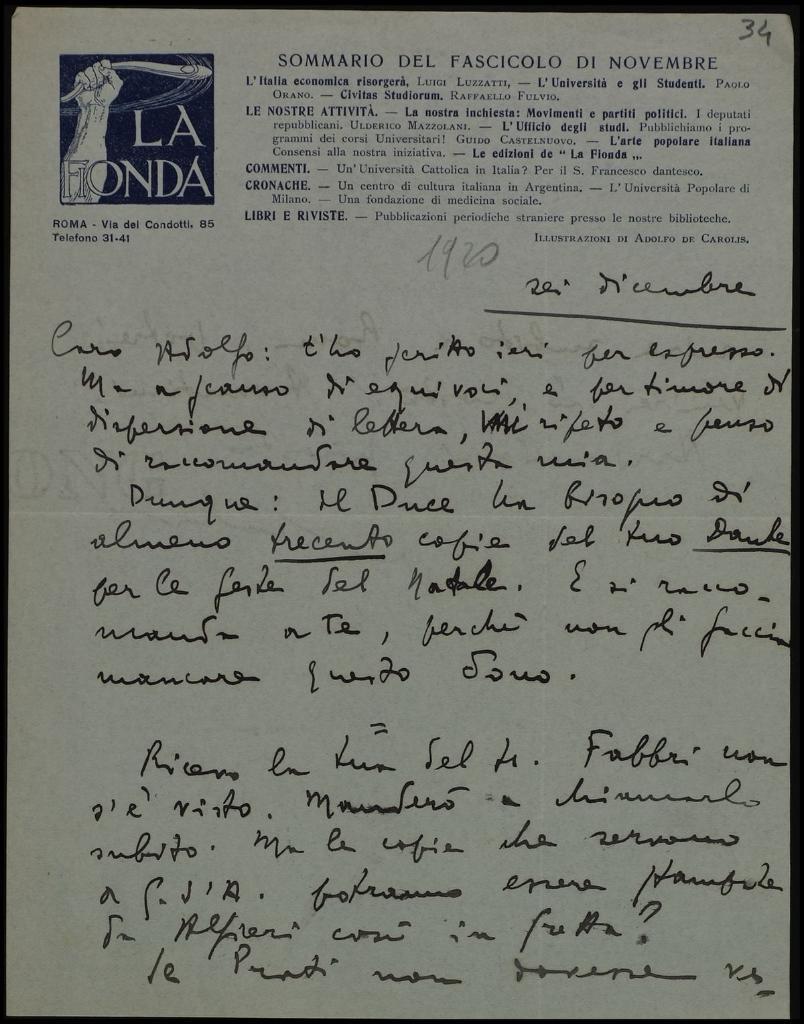 34
LA
FIONDA
ROMA - Via dei Condotti, 85
Telefono 31-41
SOMMARIO DEL FASCICOLO DI NOVEMBRE
L'Italia economica risorgerà, LUIGI LUZZATTI, — L'Università e gli Studenti. PAOLO
ORANO. — Civitas Studiorum. RAFFAELLO FULVIO.
LE NOSTRE ATTIVITÀ. — La nostra inchiesta: Movimenti e partiti politici. I deputati
repubblicani. ULDERICO MAZZOLANI. — L'Ufficio degli studi. Pubblichiamo i pro-
grammi dei corsi Universitari! GUIDO CASTELNUOVO. — L'arte popolare italiana
Consensi alla nostra iniziativa. — Le edizioni de " La Fionda „.
COMMENTI. — Un' Università Cattolica in Italia? Per il S. Francesco dantesco.
CRONACHE. — Un centro di cultura italiana in Argentina. — L' Università Popolare di
Milano. — Una fondazione di medicina sociale.
LIBRI E RIVISTE. — Pubblicazioni periodiche straniere presso le nostre biblioteche.
ILLUSTRAZIONI DI ADOLFO DE CAROLIS.
1920
sei dicembre
Caro Adolfo: t'ho scritto ieri per espresso.
Ma a scanso di equivoci, e per timore di
dispersione di lettera, mi ripeto e penso
di raccomandare questa mia.
Dunque: il Duce ha bisogno di
almeno trecento copie del tuo Dante
per le feste del Natale. E si racco-
manda a te, perché non gli faccia
mancare questo dono.
=
Ricevo la tua del Fabbri non
s'è visto. Manderò a
subito. Ma le copie che servono
a G. d'A. potranno essere stampate
da Alfieri così in fretta?
Se Prati non dovesse ve-